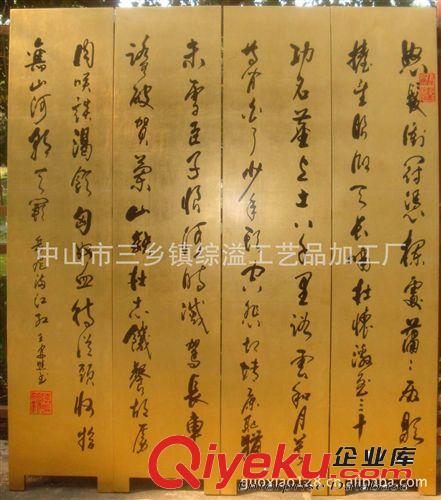 怒髮衝冠憑欄處瀟瀟雨歇
擡望眼仰天長嘯壯懷激烈三十
功名塵与土八千里路雲和月莫
等閒白了少年頭空悲切靖康恥猶
未雪臣子恨何時滅駕長車
踏破賀蘭山缺壯志飢餐胡虜
肉笑談渴飲匈奴血待從頭收拾
舊山河朝天闕 岳飛滿江紅
中山市三乡镇综溢工艺品加工厂
Qiyeku.com
企业库